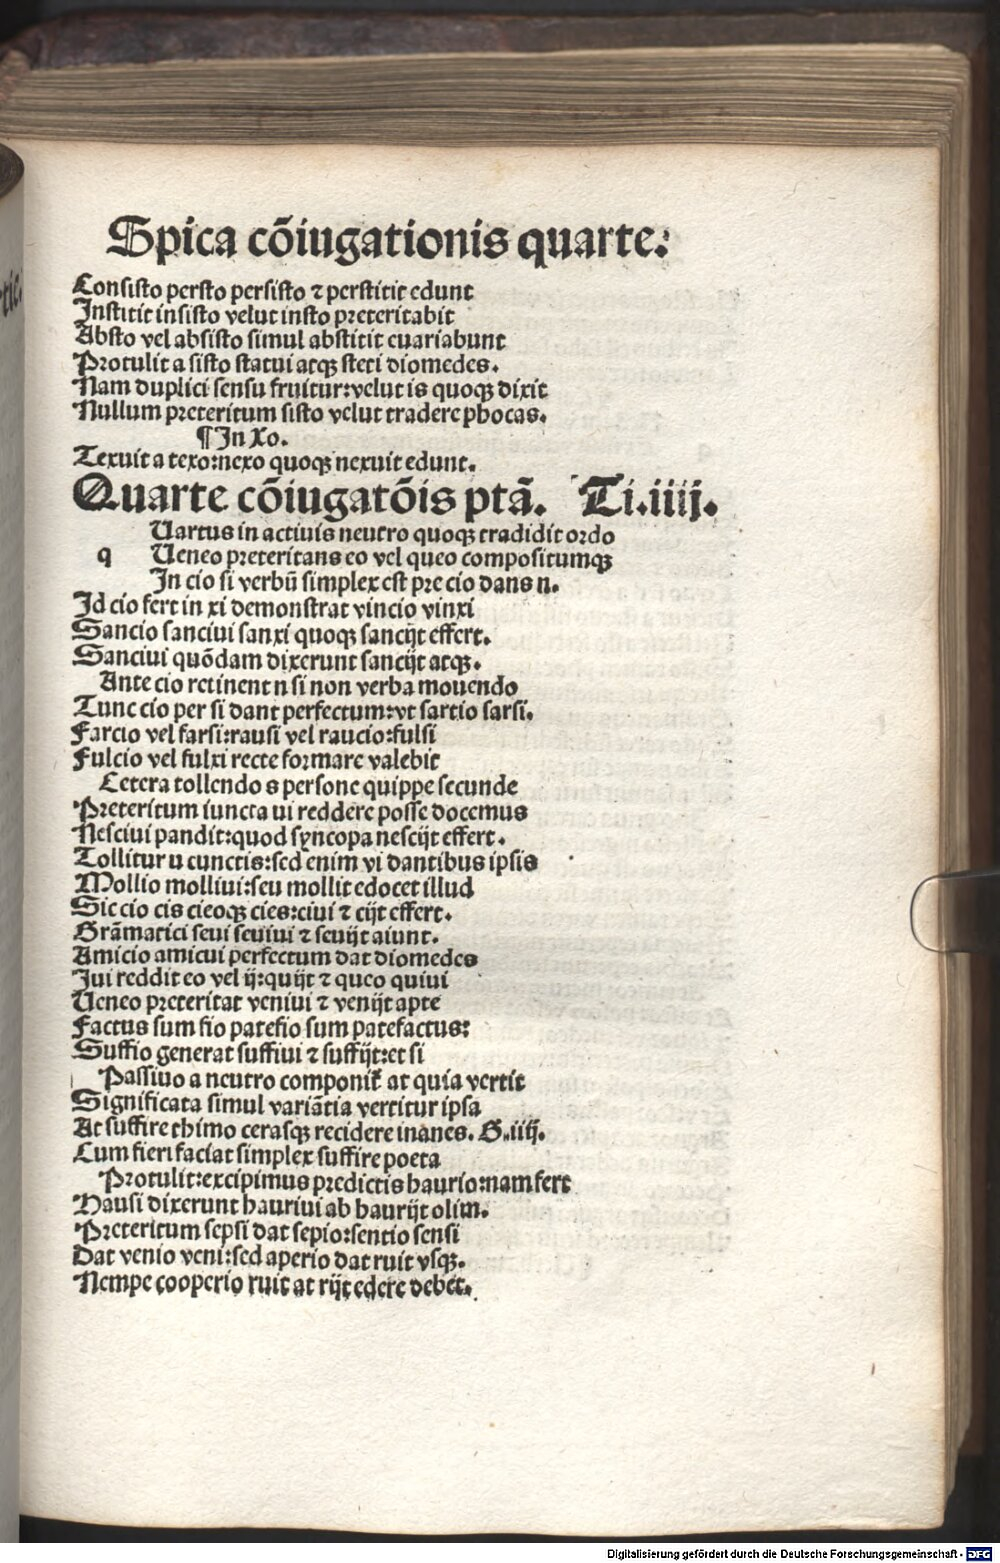 Spica cõiugationis quarte.
Consisto persto persisto ⁊ perstitit edunt
Institit insisto velut insto preteritabit
Absto vel absisto simul abstitit euariabunt
Protulit a sisto statui atqꝫ steti diomedes.
Nam duplici sensu fruitur:velut is quoqꝫ dixit
Nullum preteritum sisto velut tradere phocas.
¶ In Xo.
Texuit a texo:nexo quoqꝫ nexuit edunt.
Quarte cõiugatõis ptã. Ti.iiij.
Uartus in actiuis neutro quoqꝫ tradidit ordo
q Ueneo preteritans eo vel queo compositumqꝫ
In cio si verbũ simplex est pre cio dans n.
Id cio fert in xi demonstrat vincio vinxi
Sancio sanciui sanxi quoqꝫ sancijt effert.
Sanciui quõdam dixerunt sancijt atqꝫ.
Ante cio retinent n si non verba mouendo
Tunc cio per si dant perfectum:vt sartio sarsi.
Farcio vel farsi:rausi vel raucio:fulsi
Fulcio vel fulxi recte formare valebit
Cetera tollendo s persone quippe secunde
Preteritum iuncta ui reddere posse docemus
Nesciui pandit:quod syncopa nescijt effert.
Tollitur u cunctis:sed enim vi dantibus ipsis
Mollio molliui:seu mollit edocet illud
Sic cio cis cieoqꝫ cies:ciui ⁊ cijt effert.
Grãmatici seui seuiui ⁊ seuijt aiunt.
Amicio amicui perfectum dat diomedes
Iui reddit eo vel ij:quijt ⁊ queo quiui
Ueneo preteritat veniui ⁊ venijt apte
Factus sum fio patefio sum patefactus:
Suffio generat suffiui ⁊ suffijt:et si
Passiuo a neutro componit᷑ at quia vertit
Significata simul variãtia vertitur ipsa
At suffire thimo cerasqꝫ recidere inanes. G.iiij.
Cum fieri faciat simplex suffire poeta
Protulit:excipimus predictis haurio:nam fert
Hausi dixerunt hauriui ab haurijt olim.
Preteritum sepsi dat sepio:sentio sensi
Dat venio veni:sed aperio dat ruit vsqꝫ.
Nempe cooperio ruit at rijt edere debet.
Digitalisierung gefördert durch die Deutsche Forschungsgemeinschaft - DFG